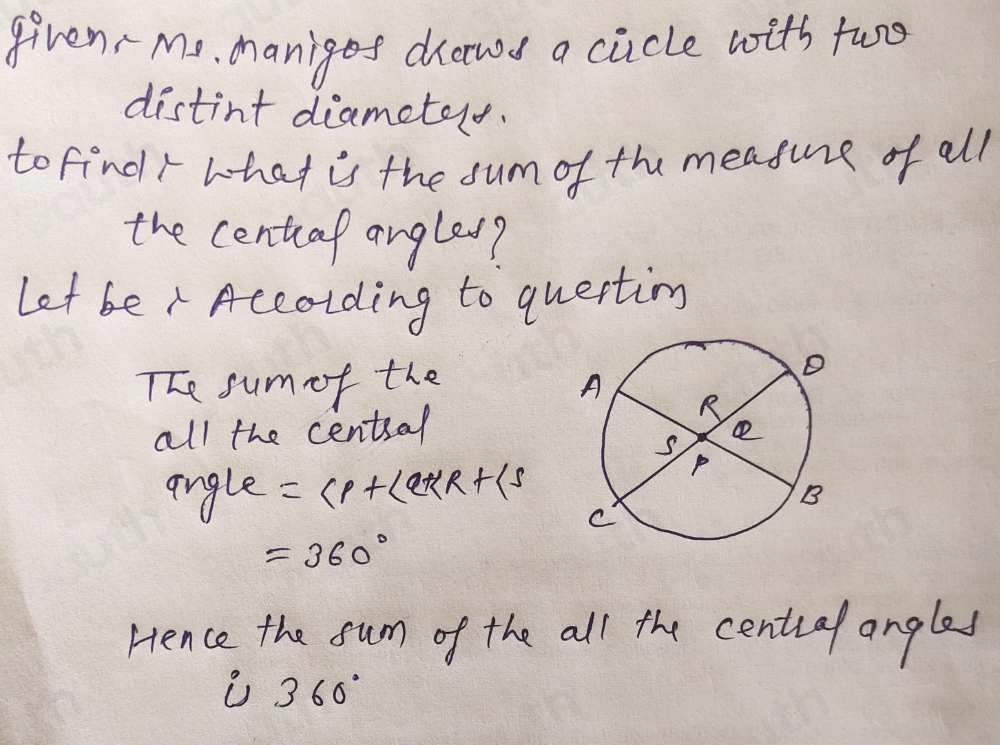 given:- Ms. Manigos draws a circle with two
distint diameters.
to find :- What is the sum of the measure of all
the central angles?
Let be :- According to question
The sum of the
all the central
angle = <P+<Q+<R+<S
= 360°
A
D
R
S
Q
P
C
B
Hence the sum of the all the central angles
is 360°